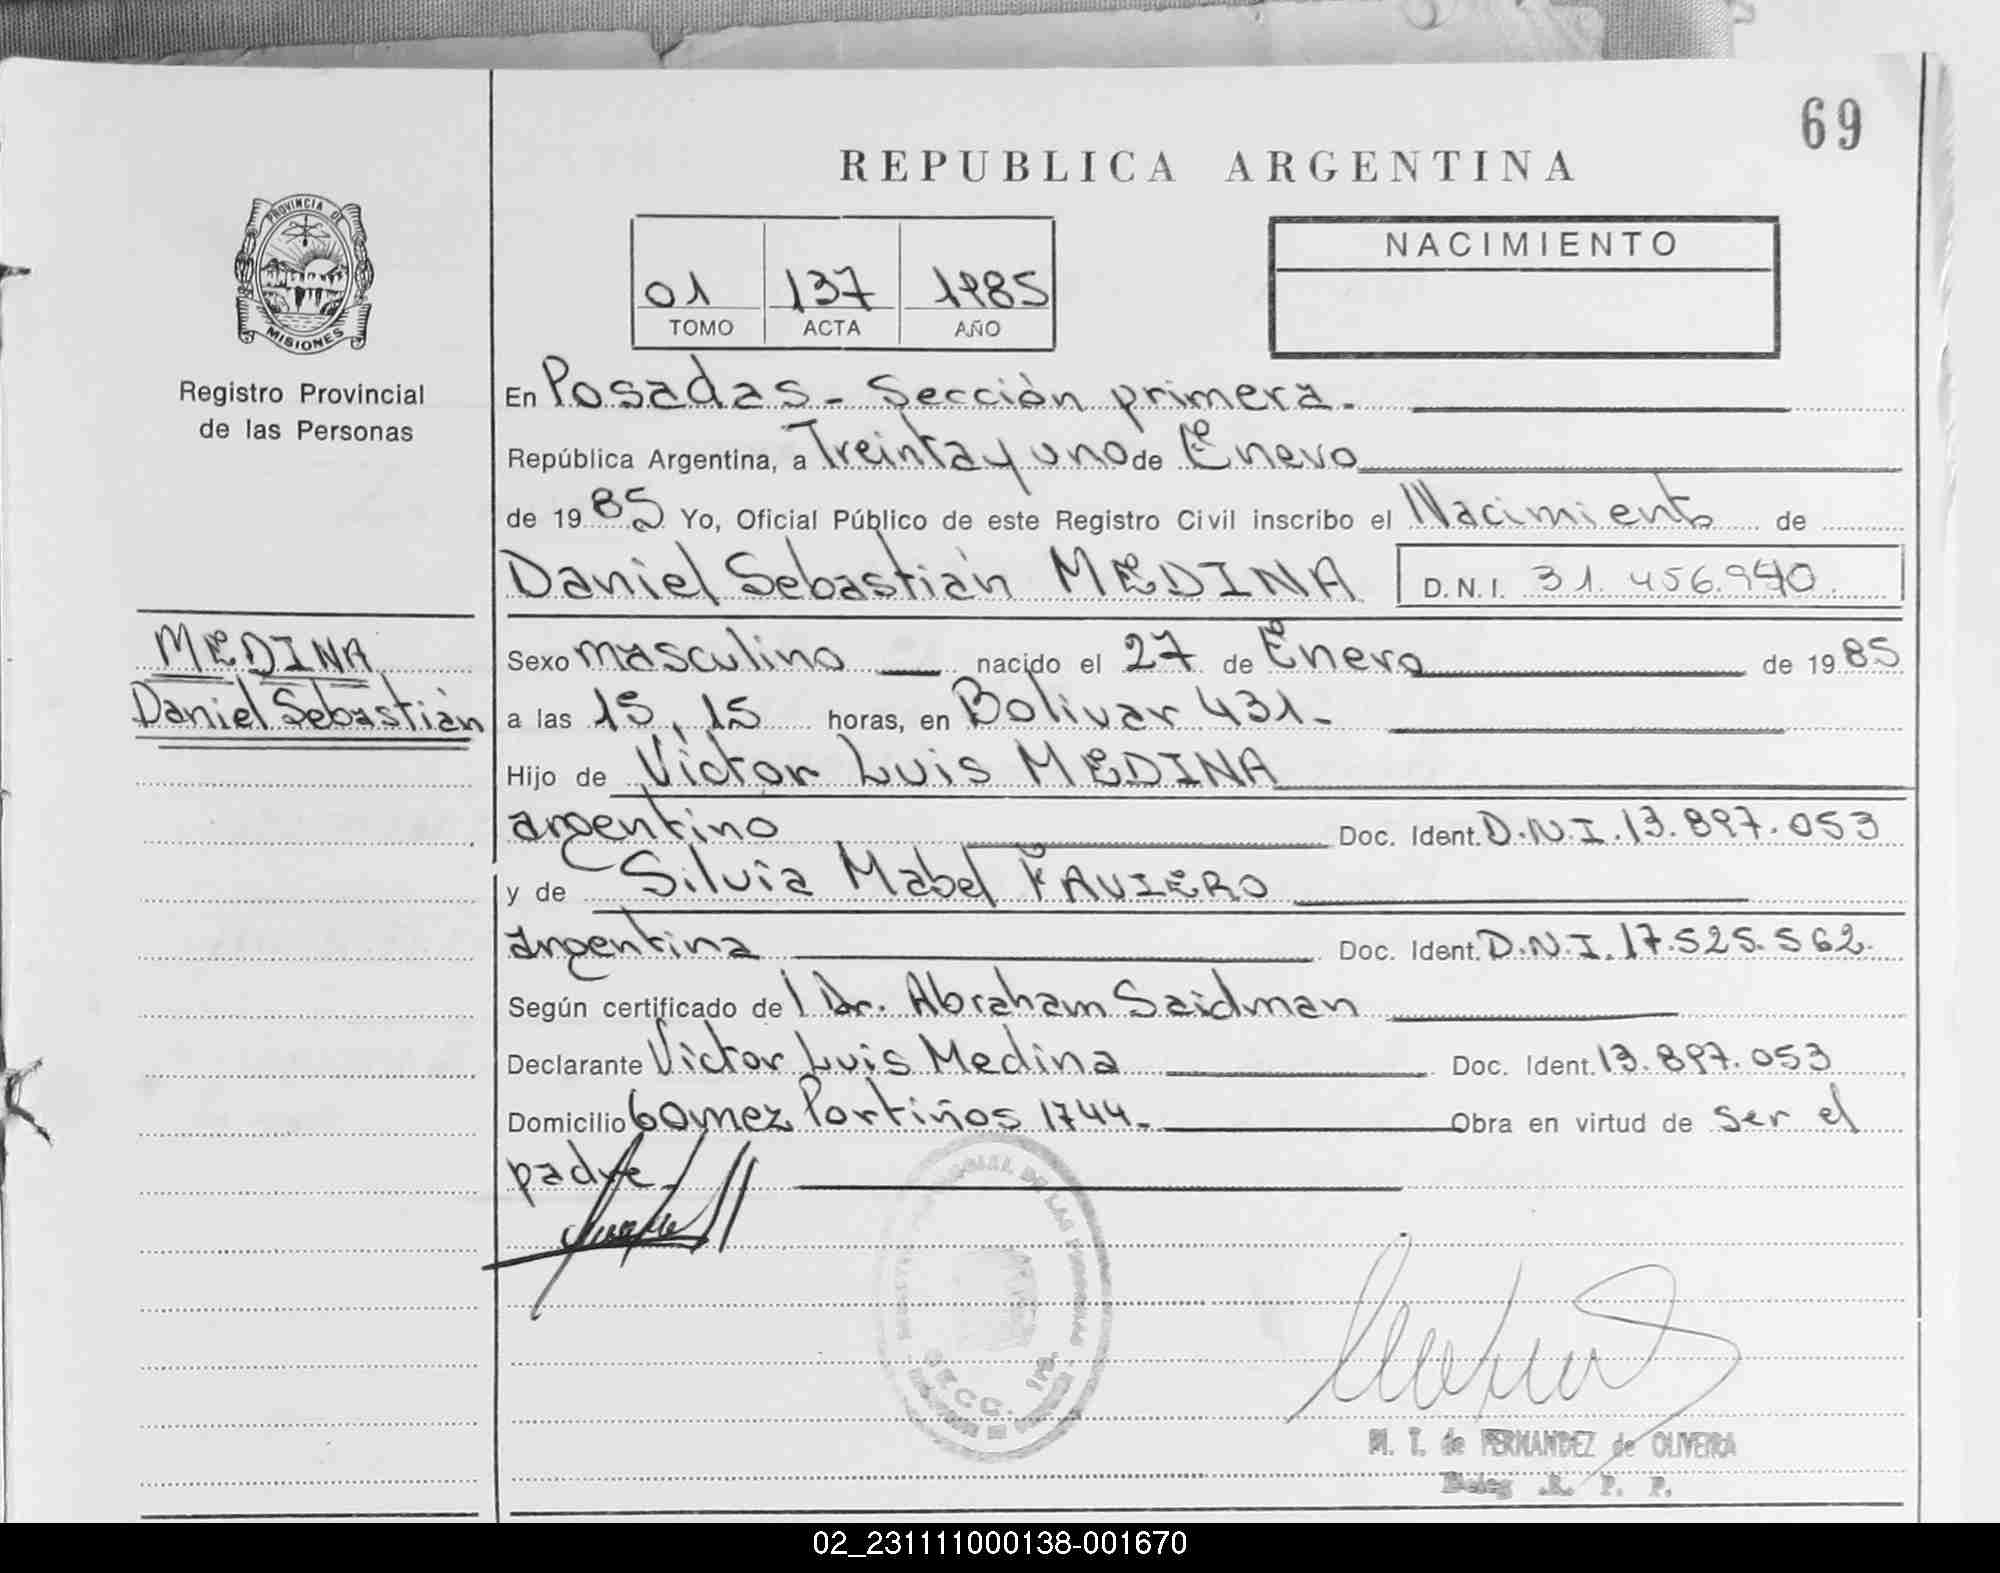 69
REPUBLICA ARGENTINA
PROVINCIA DE
MISIONES
Registro Provincial
de las Personas
01 137 1985
TOMO ACTA AÑO
NACIMIENTO
En Posadas - Sección primera.
República Argentina, a Treinta y uno de Enero
de 1985 Yo, Oficial Público de este Registro Civil inscribo el Nacimiento de
Daniel Sebastián MEDINA D.N.I. 31.456.940.
MEDINA
Daniel Sebastián
Sexo masculino nacido el 27 de Enero de 1985
a las 15,15 horas, en Bolivar 431.-
Hijo de Víctor Luis MEDINA
argentino Doc. Ident. D.N.I. 13.897.053
y de Silvia Mabel FAVIERO
argentina Doc. Ident. D.N.I. 17.525.562.
Según certificado de l Dr. Abraham Saidman
Declarante Víctor Luis Medina Doc. Ident. 13.897.053
Domicilio Gomez Portiños 1744.- Obra en virtud de ser el
padre.
DE LAS PERSONAS
SECC. 1ra.
M. T. de FERNANDEZ de OLIVEIRA
Deleg. R. P. P.
02_231111000138-001670